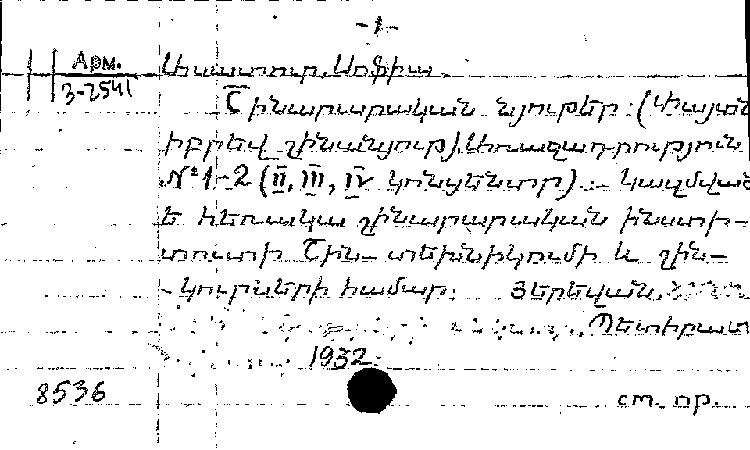 -1-
Арм.
3-2541
Ասատուր, Սոֆիա
Շինարարական նյութեր (Փայտն
իբրեվ շինանյութ) Առաջադրություն
№ 1-2 (II, III, IV կոնսպեկտը) - Կազմված
ե հեռակա շինարարական ինստի-
տուտի Շին- տեխնիկումի և շին-
կուրսերի համար: Յերեվան,
Պետհրատ
1932
8536
ст. пр.